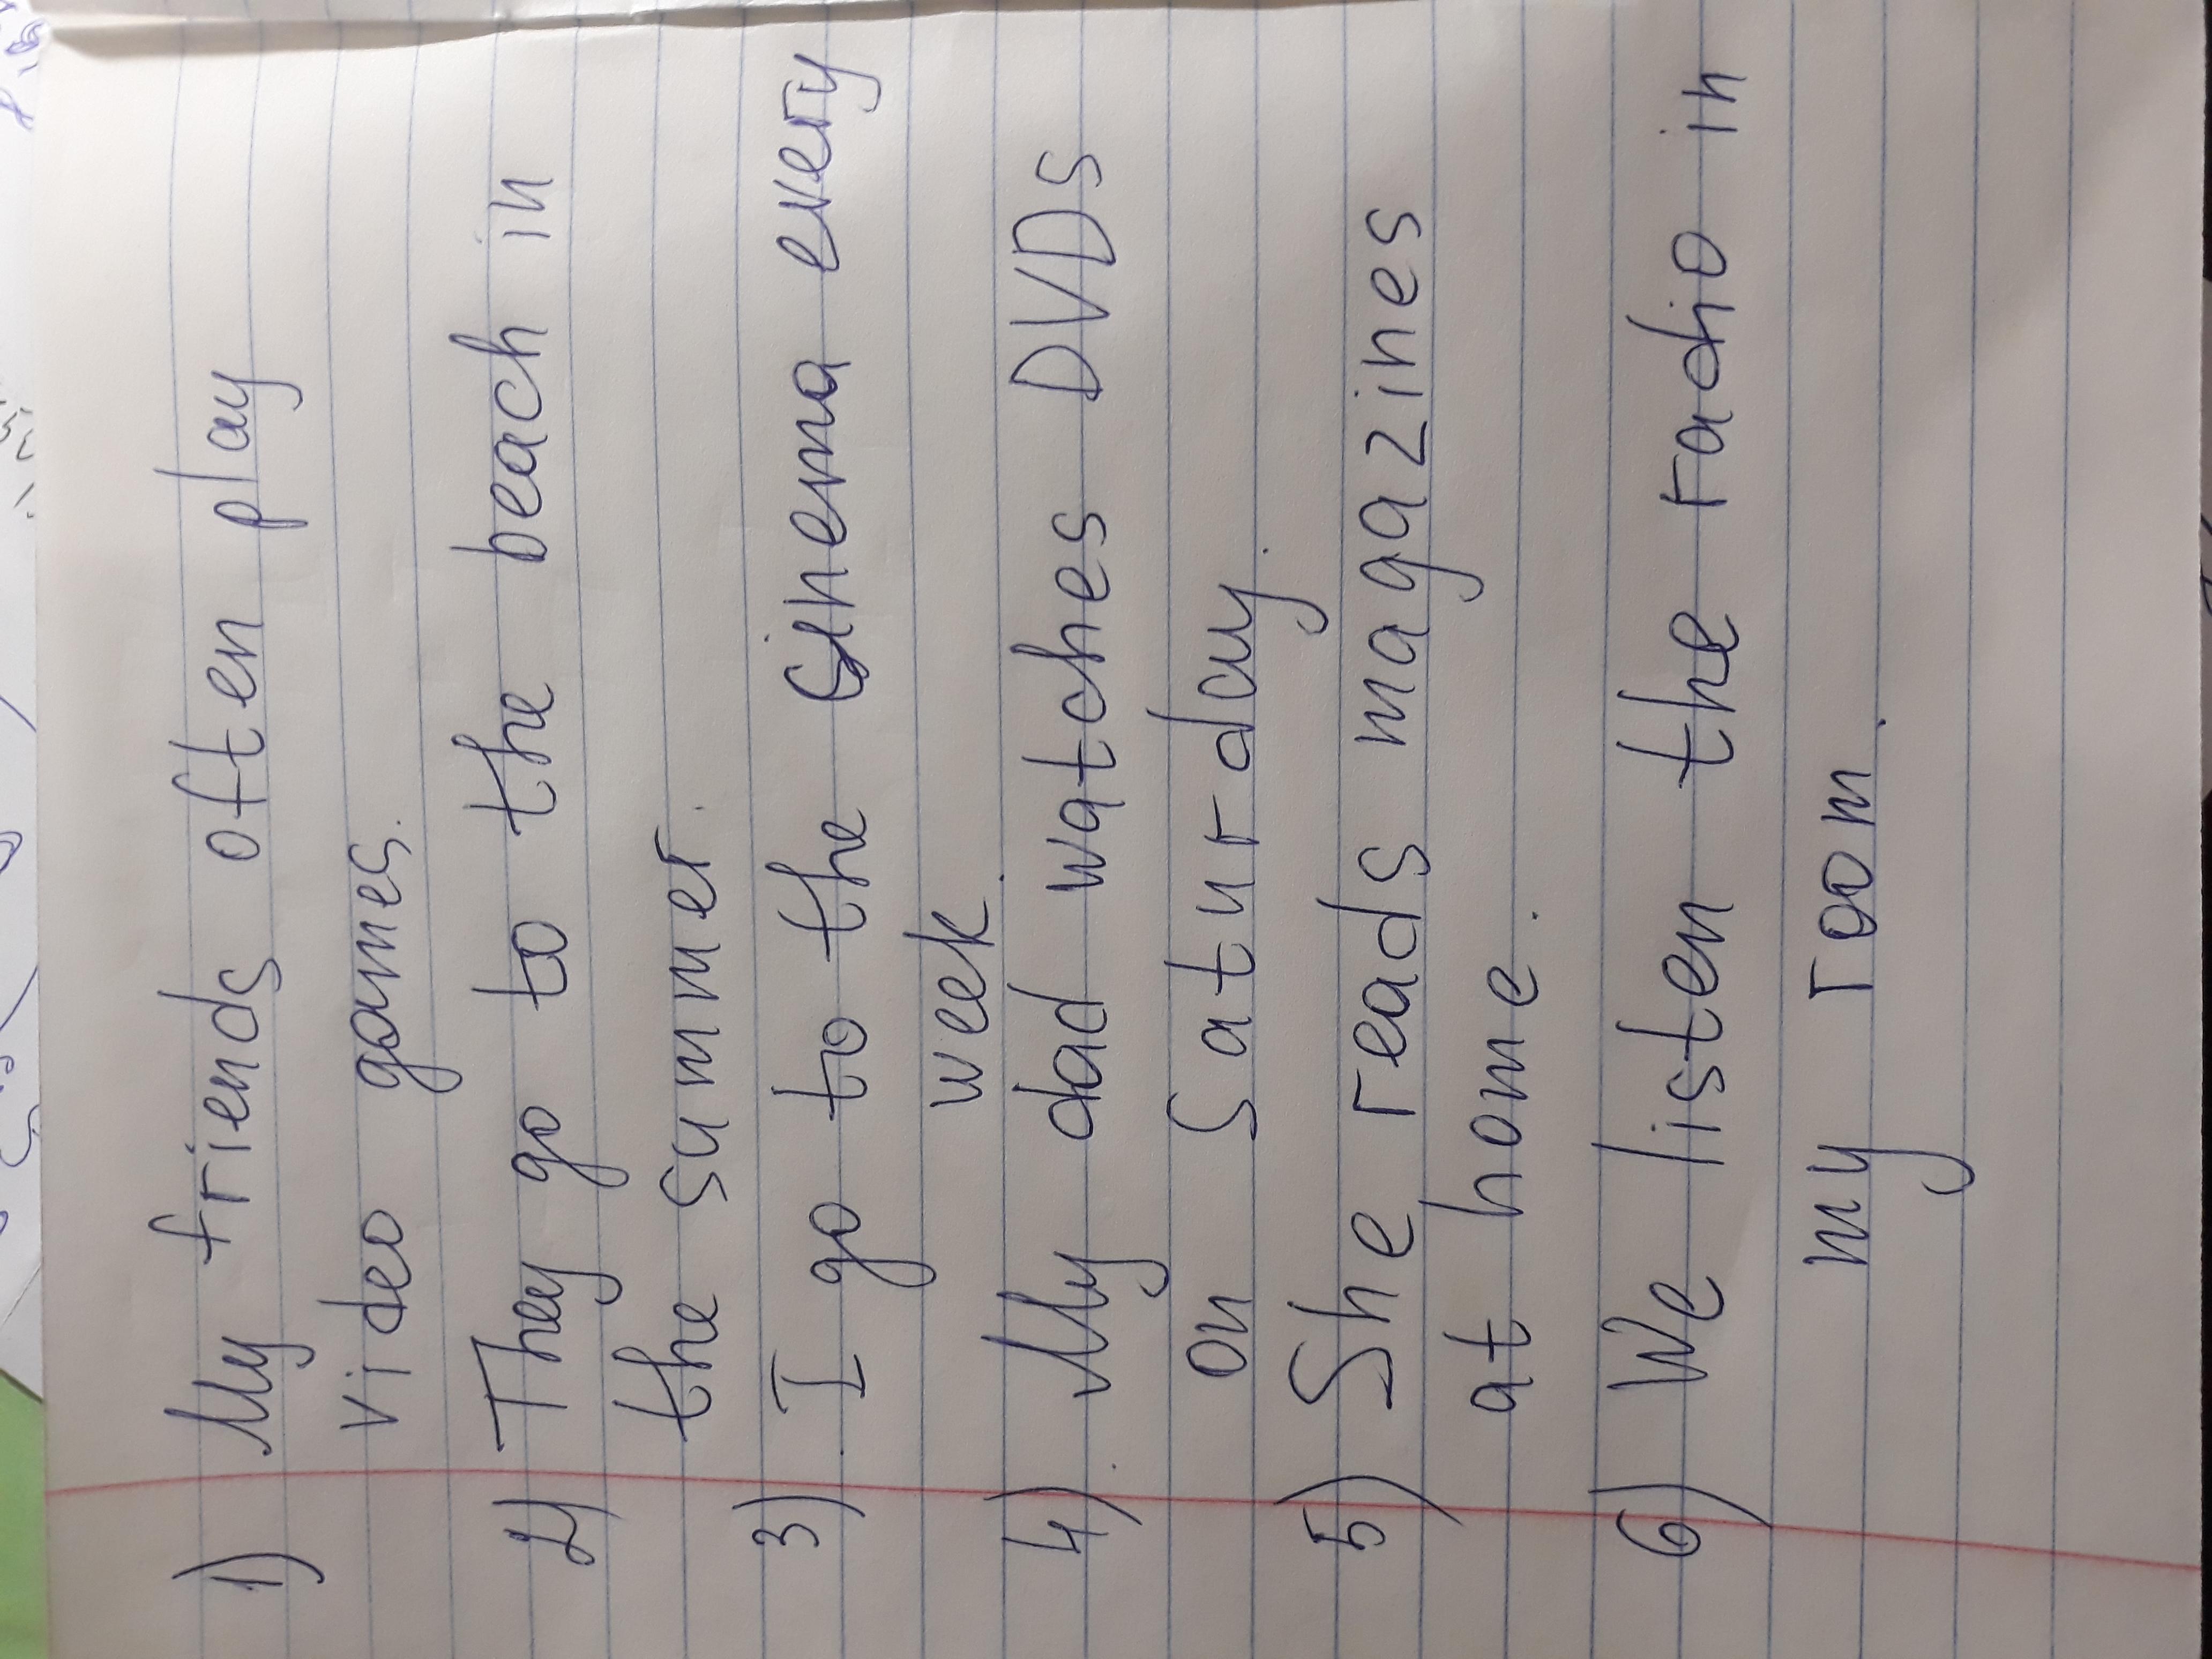 1) My friends often play
video games.
2) They go to the beach in
the summer.
3) I go to the cinema every
week.
4) My dad watches DVDs
on Saturday.
5) She reads magazines
at home.
6) We listen the radio in
my room.